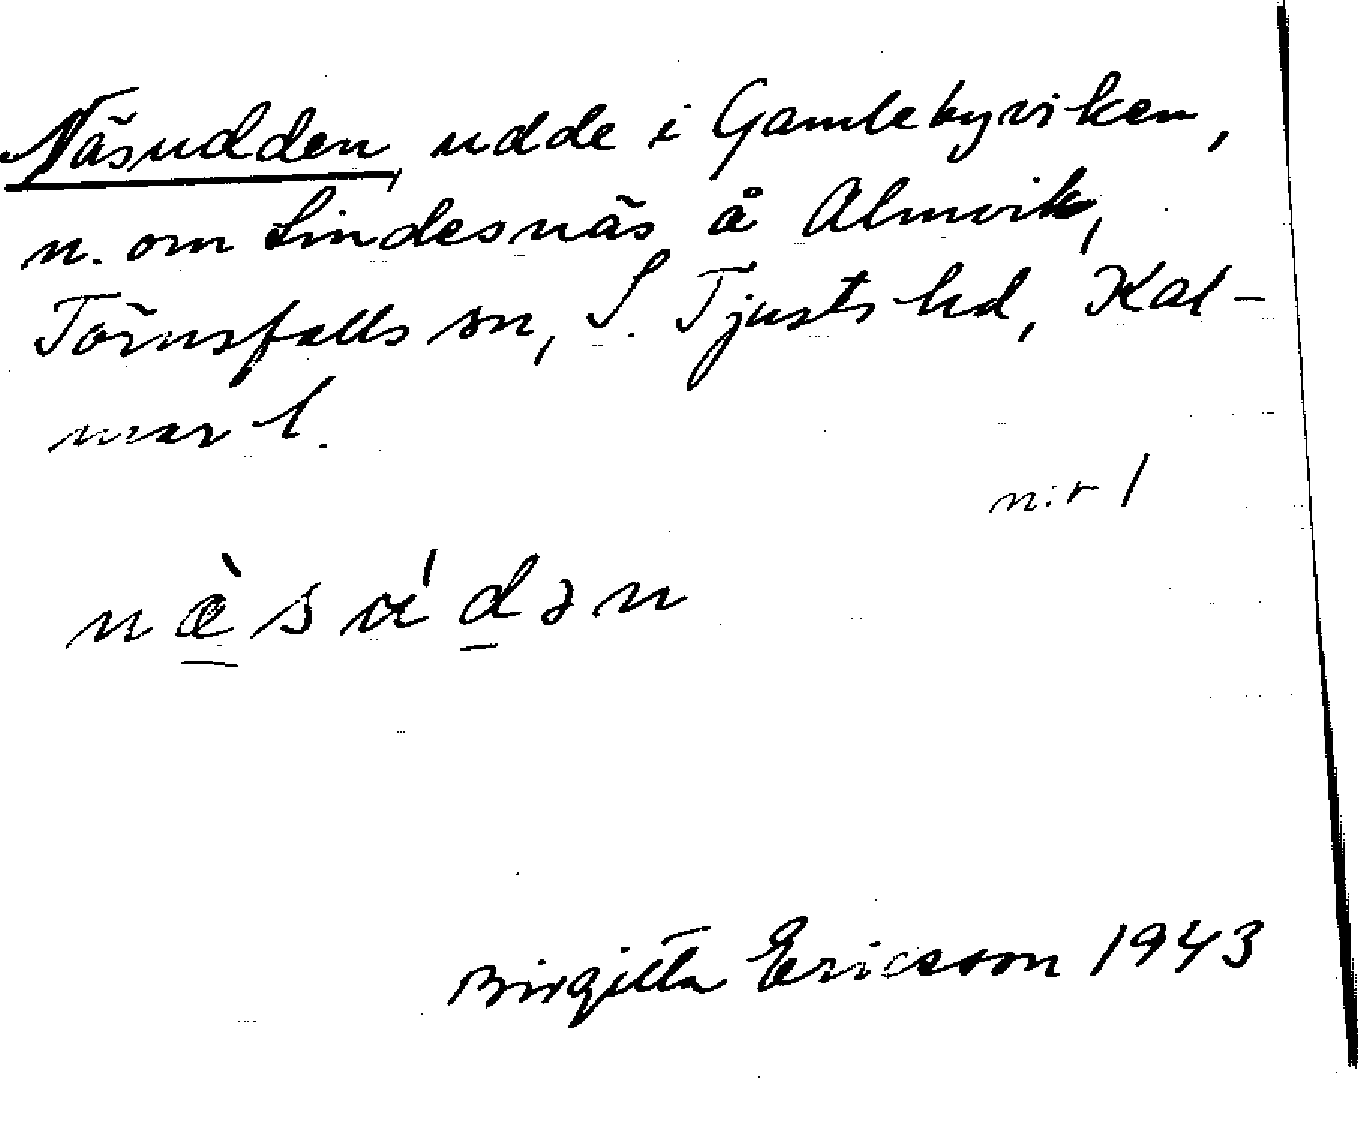 Näsudden, udde i Gamlebyviken,
n. om Lindesnäs å Almvik,
Törnsfalls sn, S. Tjusts hd, Kal-
mar l.
n:r 1
næ̀súdən
Birgitta Ericsson 1943